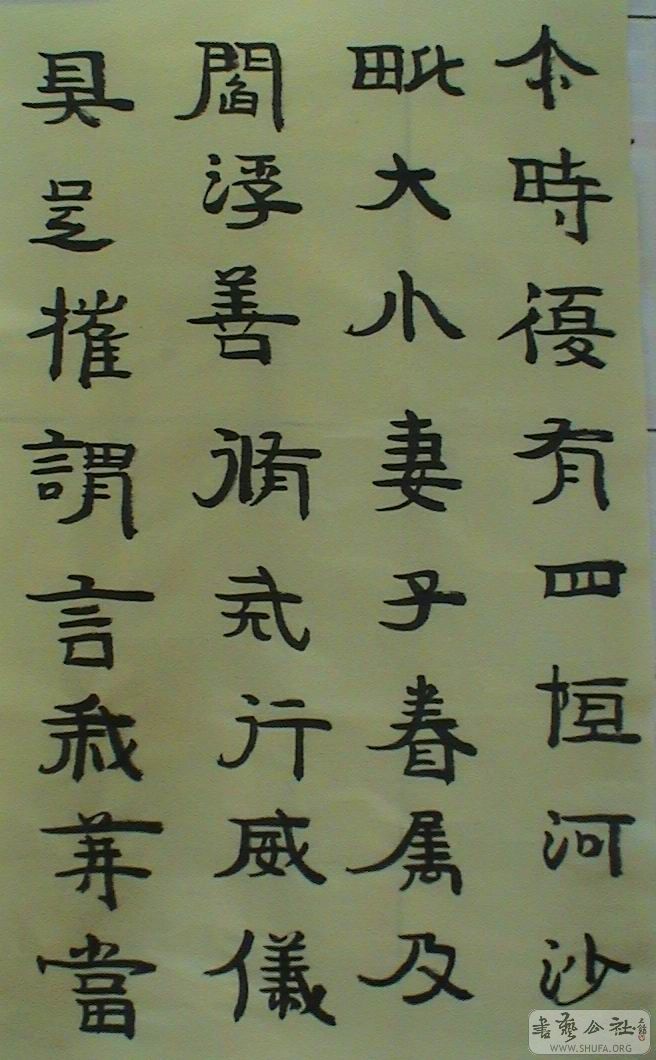 尒時復有四恒河沙
毗大小妻子眷属及
閻浮善脩戒行威儀
具足摧謂言我等當
書藝公社
WWW.SHUFA.ORG